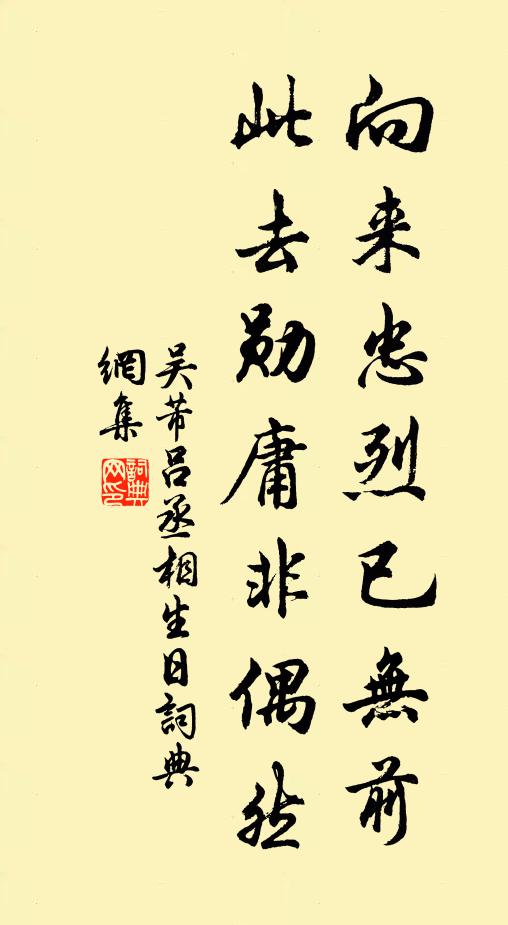 向来忠烈已無前
此去勋庸非偶然
吴芾吕丞相生日詞典
網集
詞典
网印